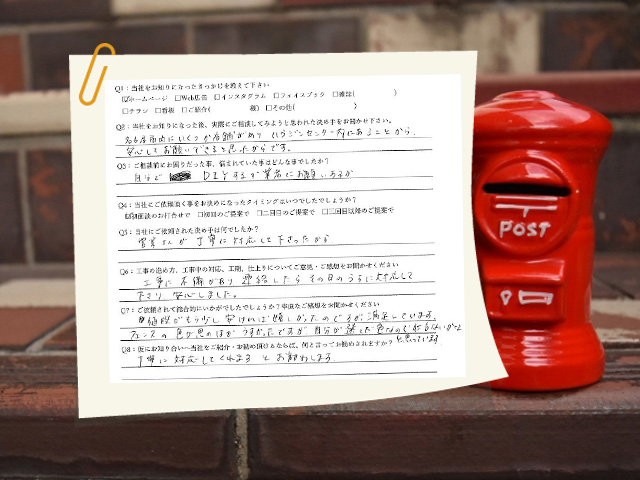 Q1：当社をお知りになったきっかけを教えて下さい
☑ホームページ □Web広告 □インスタグラム □フェイスブック □雑誌( )
□チラシ □看板 □ご紹介( 様) □その他( )
Q2：当社をお知りになった後、実際にご相談してみようと思われた決め手をお聞かせ下さい。
名古屋市内にいくつか店舗があり
センター内にあることから、
安心してお願いできると思ったからです。
Q3：ご相談前にお困りだった事、悩まれていた事はどんな事でしたか？
自分で DIYするか業者にお願いするか
Q4：当社にご依頼頂く事をお決めになったタイミングはいつでしたでしょうか？
☑初回面談のお打合せで □初回のご提案で □二回目のご提案で □三回目以降のご提案で
Q5：当社にご依頼された決め手は何でしたか？
営業さんが丁寧に対応して下さったから
Q6：工事の進め方、工事中の対応、工期、仕上りについてご意見・ご感想をお聞かせください
工事に不備があり連絡したらその日のうちに対応して
下さり安心しました。
Q7：ご依頼されて総合的にいかがでしたでしょうか？率直なご感想をお聞かせください
値段がもう少し安ければ嬉しかったのですが満足しています。
フェンスの色が思のほか
ですが自分が選んだ色なので
と思っています
Q8：仮にお知り合いへ当社をご紹介・お勧め頂けるならば、何と言ってお勧めされますか？
丁寧に対応してくれますとお勧めします
POST